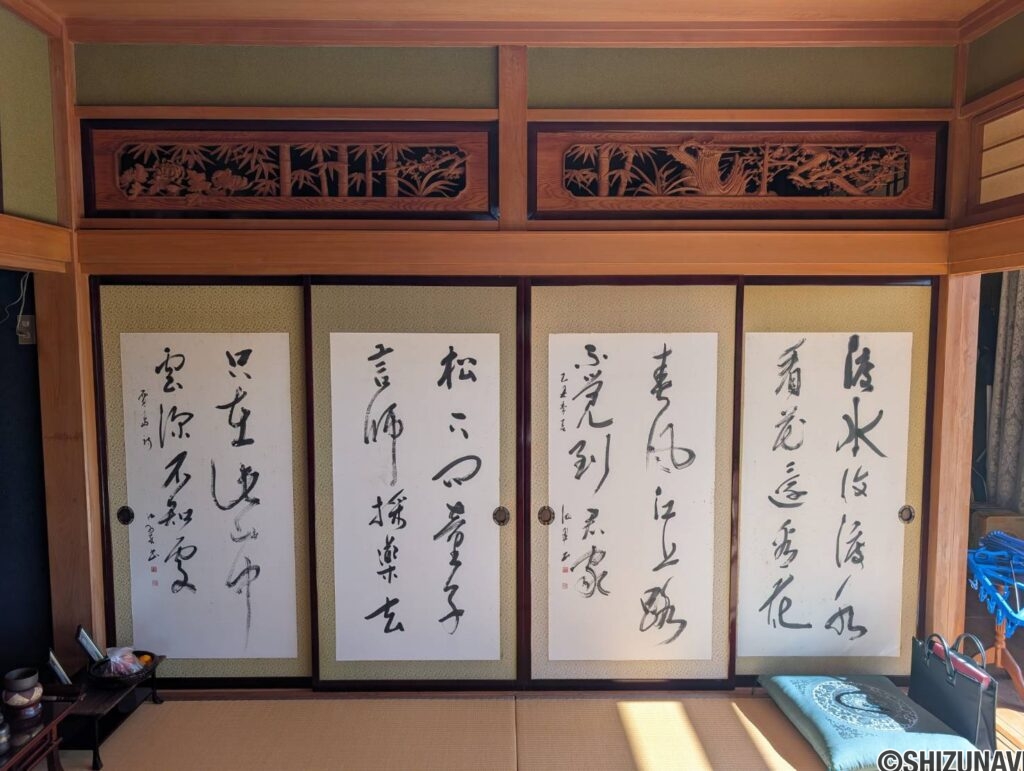 渡水復渡水
看花還看花
春風江上路
不覺到君家
松下問童子
言師採藥去
只在此山中
雲深不知處
賈島詩
©SHIZUNAVI